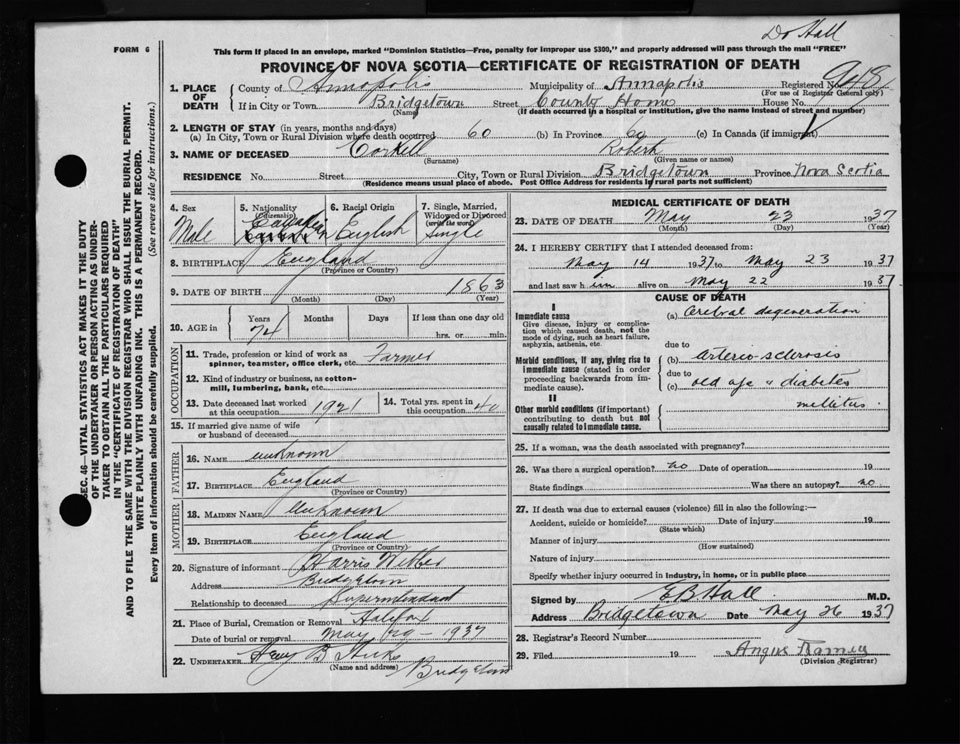 Dr Hall
FORM 6
This form if placed in an envelope, marked "Dominion Statistics—Free, penalty for improper use $300," and properly addressed will pass through the mail "FREE"
PROVINCE OF NOVA SCOTIA—CERTIFICATE OF REGISTRATION OF DEATH
1. PLACE OF DEATH
County of Annapolis Municipality of Annapolis Registered No.
(For use of Registrar General only)
If in City or Town Bridgetown Street County Home House No.
(Name) (If death occurred in a hospital or institution, give the name instead of street and number)
2. LENGTH OF STAY (in years, months and days)
(a) In City, Town or Rural Division where death occurred 60 (b) In Province 60 (c) In Canada (if immigrant)
3. NAME OF DECEASED Corkell Robert
(Surname) (Given name or names)
RESIDENCE No. Street City, Town or Rural Division Bridgetown Province Nova Scotia
(Residence means usual place of abode. Post Office Address for residents in rural parts not sufficient)
4. Sex 5. Nationality (Citizenship) 6. Racial Origin 7. Single, Married, Widowed or Divorced (write the word)
Male Canadian English Single
8. BIRTHPLACE England
(Province or Country)
9. DATE OF BIRTH 1863
(Month) (Day) (Year)
10. AGE in Years Months Days If less than one day old
74 hrs. or min.
OCCUPATION
11. Trade, profession or kind of work as spinner, teamster, office clerk, etc. Farmer
12. Kind of industry or business, as cotton-mill, lumbering, bank, etc.
13. Date deceased last worked at this occupation 1921 14. Total yrs. spent in this occupation 40
15. If married give name of wife or husband of deceased
FATHER
16. NAME unknown
17. BIRTHPLACE England
(Province or Country)
MOTHER
18. MAIDEN NAME Unknown
19. BIRTHPLACE England
(Province or Country)
20. Signature of informant Harris
Address Bridgetown
Relationship to deceased Superintendant
21. Place of Burial, Cremation or Removal Halifax
Date of burial or removal May 29 - 1937
22. UNDERTAKER Hicks Bridgetown
(Name and address)
MEDICAL CERTIFICATE OF DEATH
23. DATE OF DEATH May 23 1937
(Month) (Day) (Year)
24. I HEREBY CERTIFY that I attended deceased from:
May 14 1937 to May 23 1937
and last saw him alive on May 22 1937
CAUSE OF DEATH
I
Immediate cause
Give disease, injury or complication which caused death, not the mode of dying, such as heart failure, asphyxia, asthenia, etc.
(a) Cerebral degeneration
due to
Morbid conditions, if any, giving rise to immediate cause (stated in order proceeding backwards from immediate cause).
(b) arterio-sclerosis
due to
(c) old age & diabetes
mellitus
II
Other morbid conditions (if important) contributing to death but not causally related to immediate cause.
25. If a woman, was the death associated with pregnancy?
26. Was there a surgical operation? no Date of operation 19
State findings Was there an autopsy? no
27. If death was due to external causes (violence) fill in also the following:—
Accident, suicide or homicide? Date of injury 19
(State which)
Manner of injury
(How sustained)
Nature of injury
Specify whether injury occurred in industry, in home, or in public place
Signed by E B Hall M.D.
Address Bridgetown Date May 26 1937
28. Registrar's Record Number
29. Filed 19 Angus Ramey
(Division Registrar)
SEC. 46—VITAL STATISTICS ACT MAKES IT THE DUTY
OF THE UNDERTAKER OR PERSON ACTING AS UNDER-
TAKER TO OBTAIN ALL THE PARTICULARS REQUIRED
IN THE "CERTIFICATE OF REGISTRATION OF DEATH"
AND TO FILE THE SAME WITH THE DIVISION REGISTRAR WHO SHALL ISSUE THE BURIAL PERMIT.
WRITE PLAINLY WITH UNFADING INK. THIS IS A PERMANENT RECORD.
Every item of information should be carefully supplied. (See reverse side for instructions.)